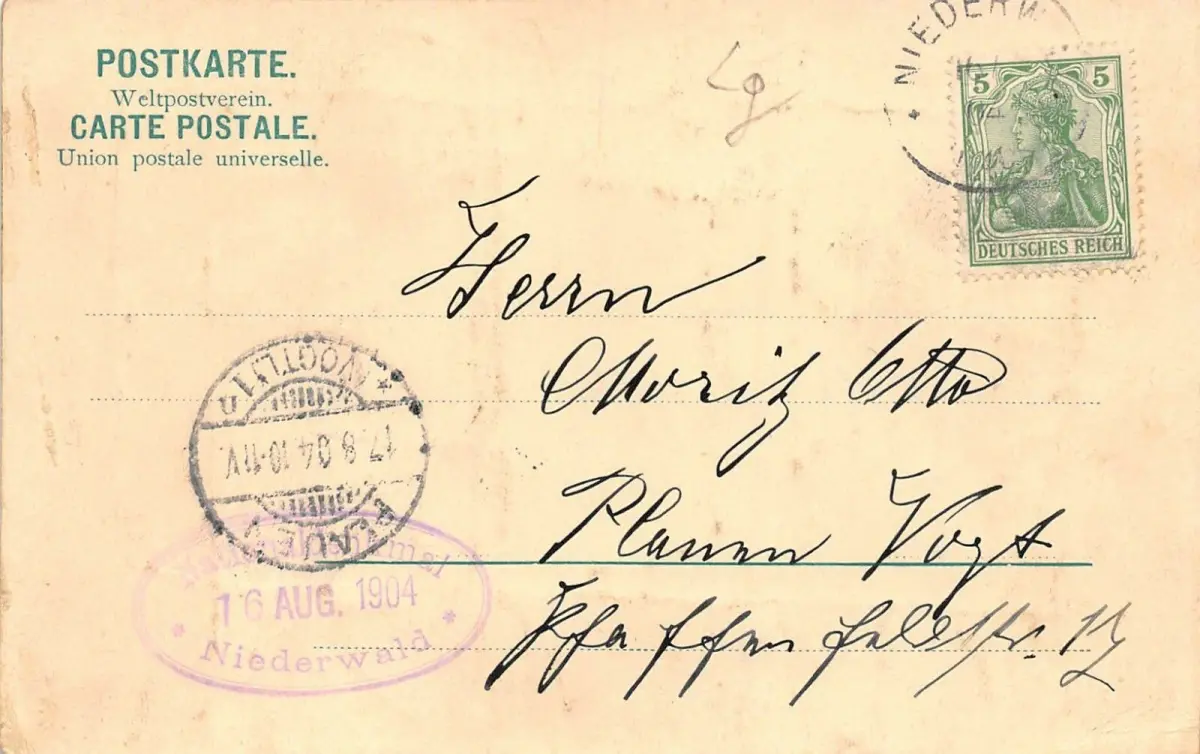 POSTKARTE.
Weltpostverein.
CARTE POSTALE.
Union postale universelle.
NIEDERW
5 5
DEUTSCHES REICH
Herrn
Moritz Otto
Plauen Vogt
Pfaffenfeldstr. 17
(VOGTL) 1
17.8.04.10-11V.
PLAUEN
Nationaldenkmal
16 AUG. 1904
* Niederwald *